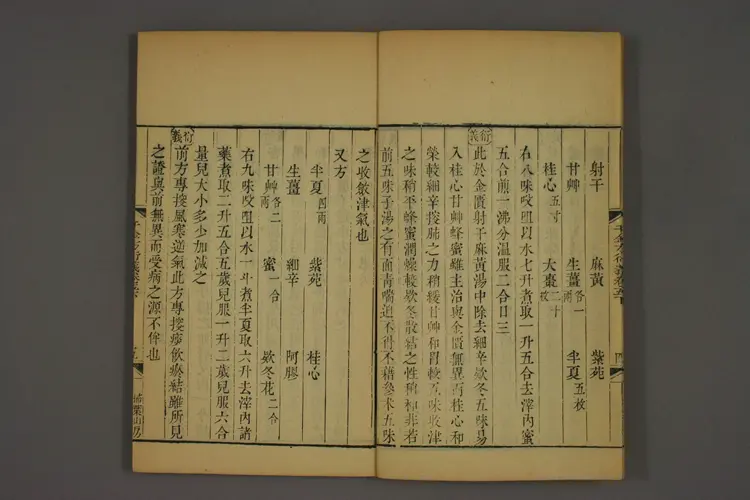 射干 麻黃 紫苑
甘艸 生薑各一兩 半夏五枚
桂心五寸 大棗二十枚
右八味㕮咀以水七升煮取一升五合去滓內蜜
五合煎一沸分溫服二合日三
衍義
此於金匱射干麻黃湯中除去細辛欵冬五味易
入桂心甘艸蜂蜜雖主治與金匱無異而桂心和
榮較細辛搜肺之力稍緩甘艸和胃較五味收津
之味稍平蜂蜜潤燥較欵冬散結之性稍和非若
前五味子湯之有面靑喘迫不得不藉參朮五味
之收斂津氣也
又方
半夏四兩 紫苑 桂心
生薑 細辛 阿膠
甘艸各二兩 蜜一合 欵冬花二合
右九味㕮咀以水一斗煮半夏取六升去滓內諸
藥煮取二升五合五歲兒服一升二歲兒服六合
量兒大小多少加減之
衍義
前方專搜風寒逆氣此方專搜痰飲瘀結雖所見
之證與前無異而受病之源不侔也
四
五